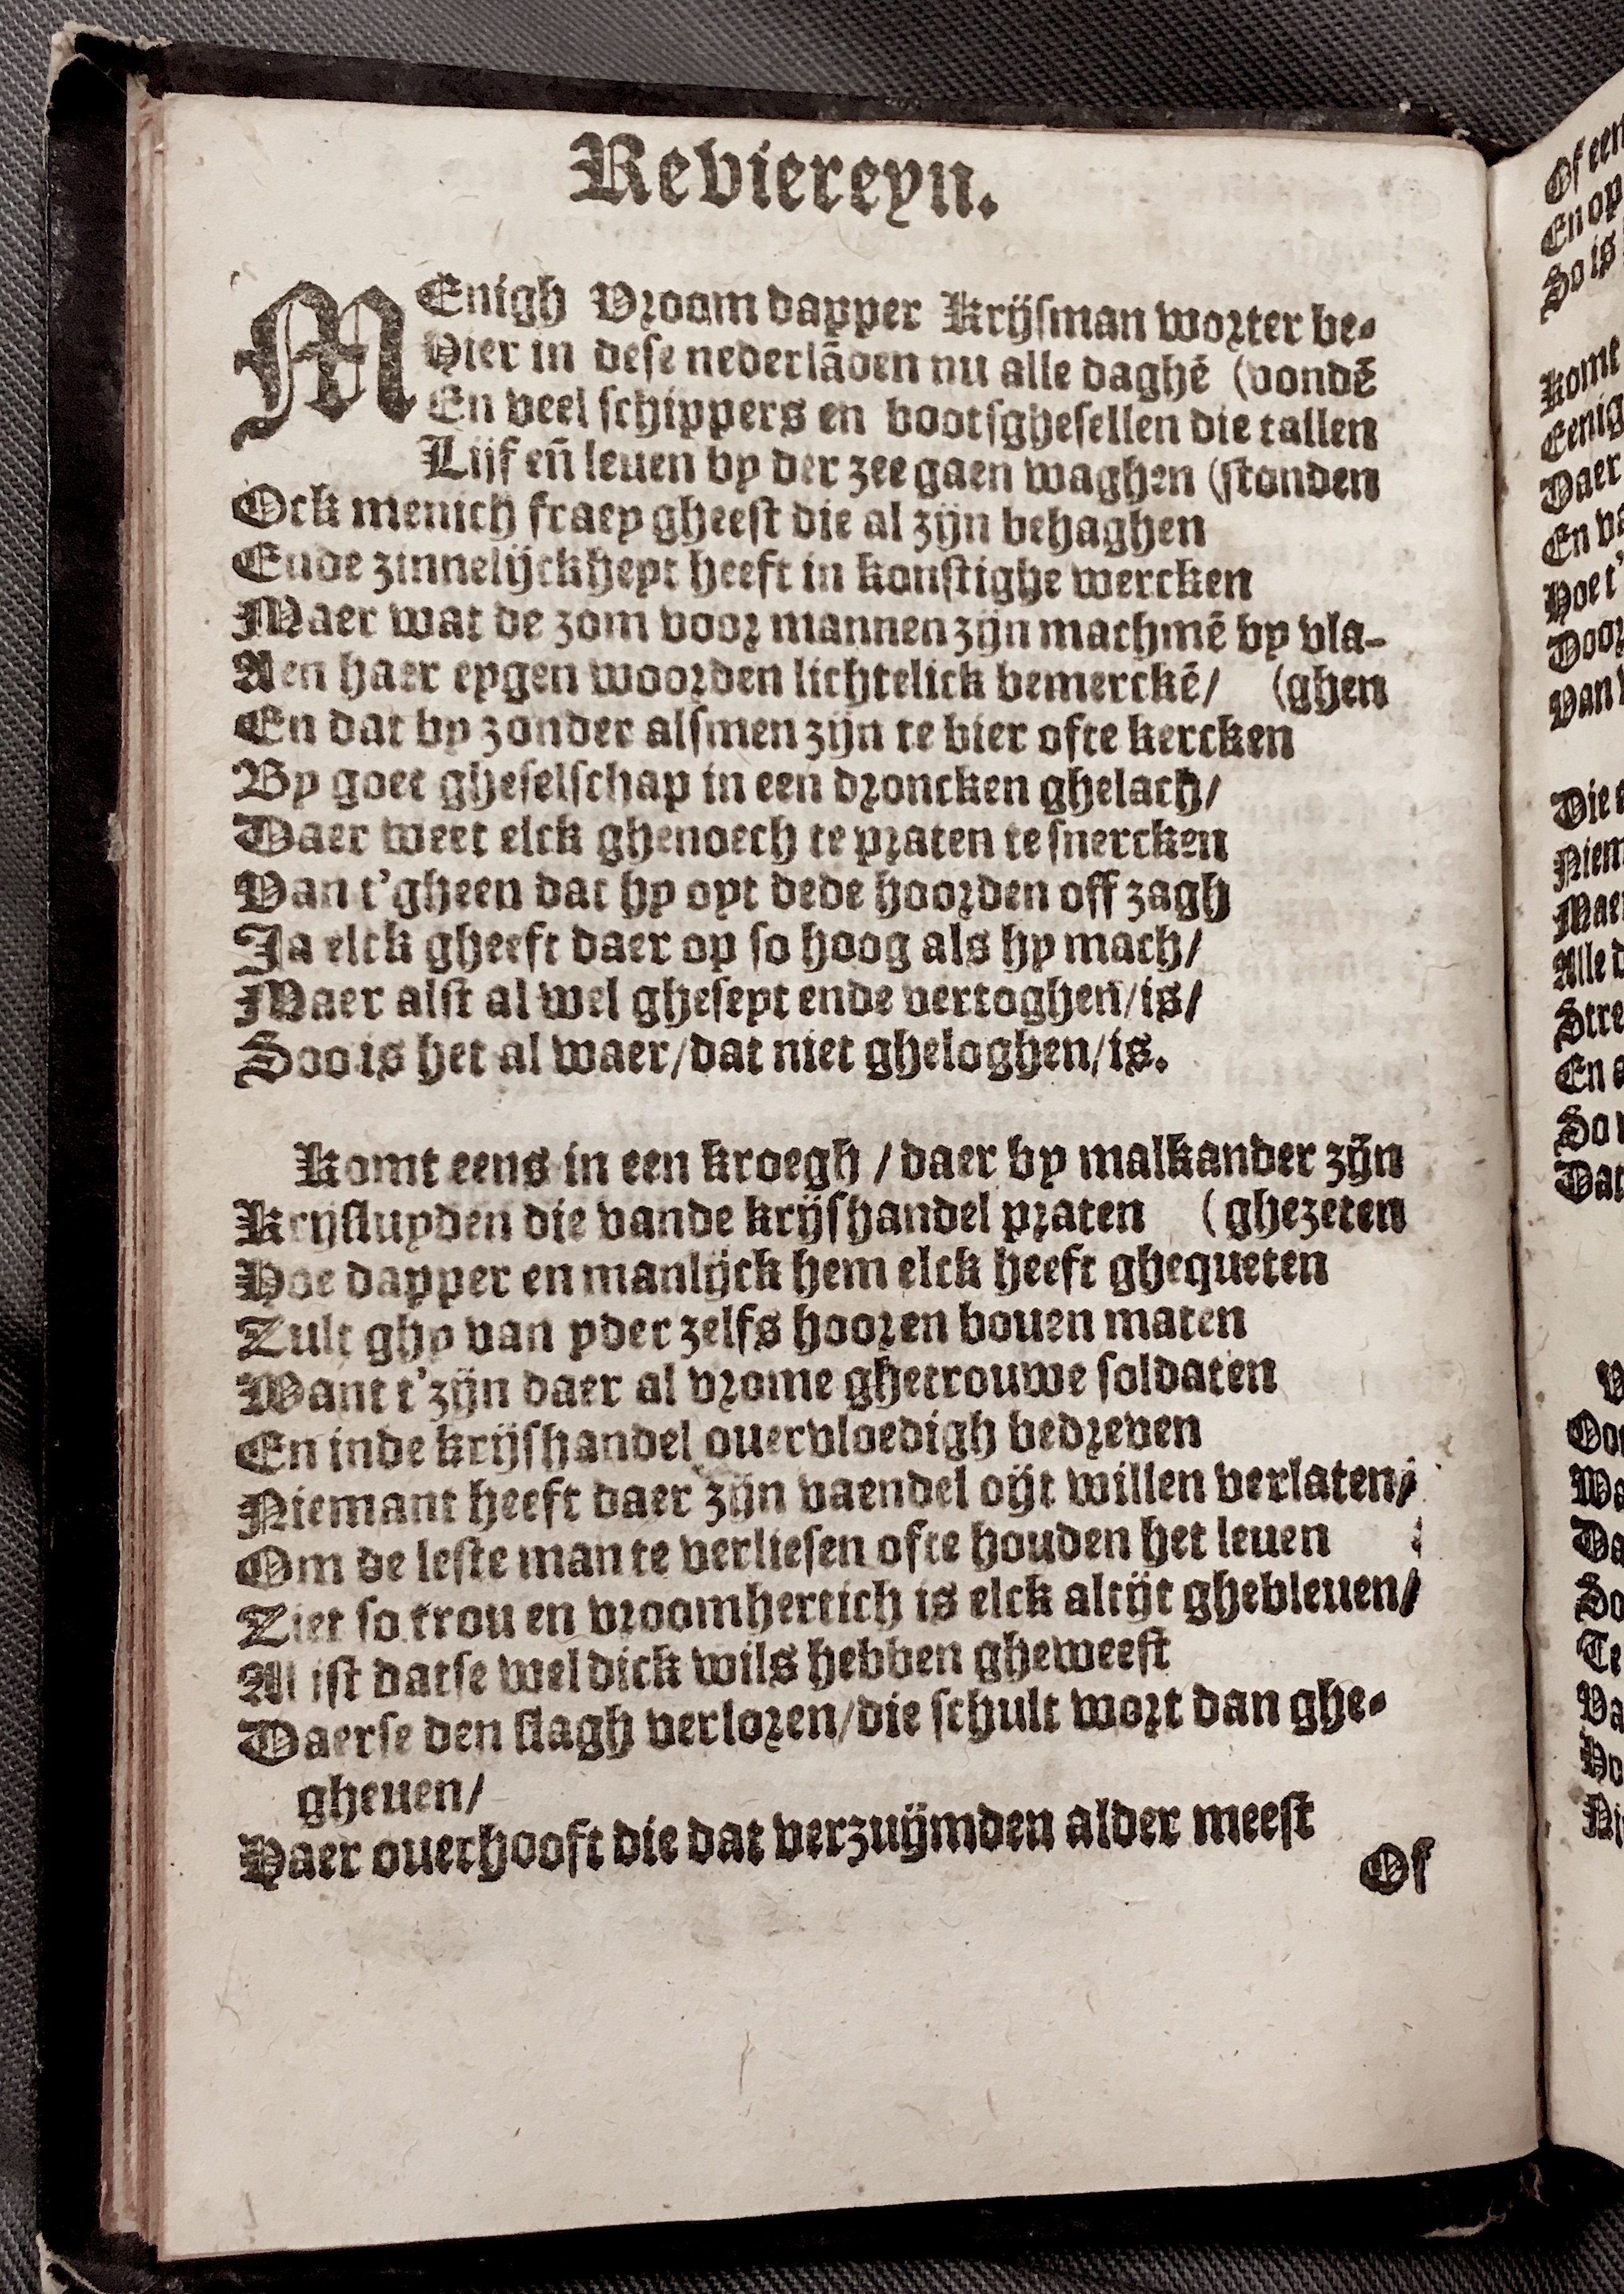 Reviereyn.
MEnigh Vroom dapper Krijsman worter be-
Hier in dese nederlãden nu alle daghẽ (vondẽ
En veel schippers en bootsghesellen die tallen
Lijf eñ leuen by der zee gaen waghen (stonden
Ock menich fraey gheest die al zijn behaghen
Ende zinnelijckheyt heeft in konstighe wercken
Maer wat de zom voor mannen zijn machmẽ by vla-
Aen haer eygen woorden lichtelick bemerckẽ/ (ghen
En dat by zonder alsmen zijn te bier ofte kercken
By goet gheselschap in een droncken ghelach/
Daer weet elck ghenoech te praten te snercken
Van t'gheen dat hy oyt dede hoorden off zagh
Ja elck gheeft daer op so hoog als hy mach/
Maer alst al wel gheseyt ende vertoghen/is/
Soo is het al waer/dat niet gheloghen/is.
Komt eens in een kroegh / daer by malkander zijn
Krijsluyden die vande krijshandel praten (ghezeten
Hoe dapper en manlijck hem elck heeft ghequeten
Zult ghy van yder zelfs hooren bouen maten
Want t'zijn daer al vrome ghetrouwe soldaten
En inde krijshandel ouervloedigh bedreven
Niemant heeft daer zijn vaendel oijt willen verlaten/
Om de leste man te verliesen ofte houden het leuen
Ziet so trou en vroomhertich is elck altijt ghebleuen/
Al ist datse wel dick wils hebben gheweest
Daerse den slagh verloren/die schult wort dan ghe-
gheuen/
Haer ouerhooft die dat verzuijmden alder meest
Of